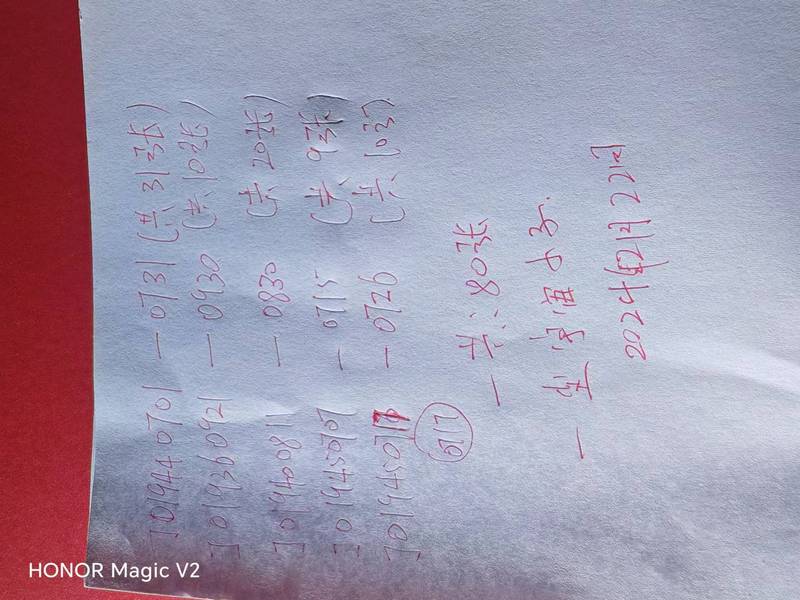 J019440701 — 0731 (共: 31张)
J019360921 — 0930 (共: 10张)
J019400811 — 0830 (共: 20张)
J019450707 — 0715 (共: 9张)
J0194507 — 0726 (共: 10张)
0717
一共: 80张
2024年12月22日
HONOR Magic V2